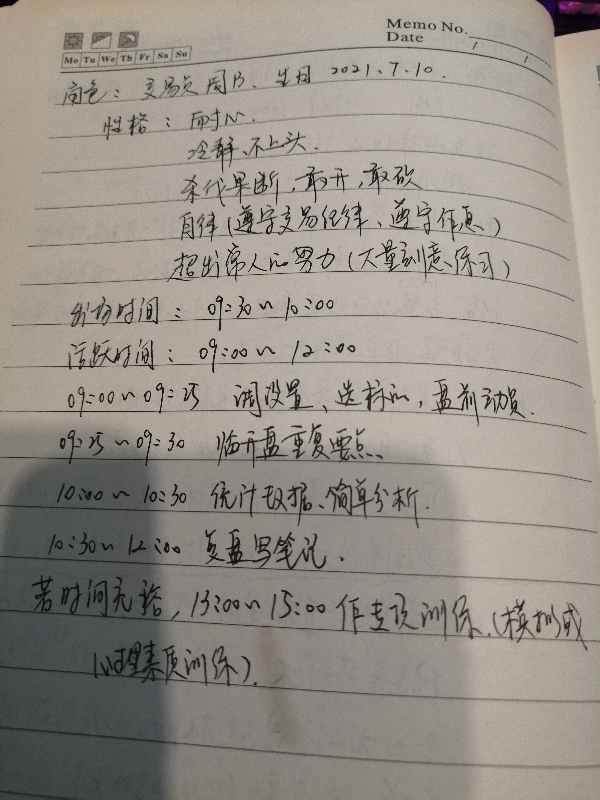 Memo No.
Date / /
Mo Tu We Th Fr Sa Su
角色：交易员周B、生日 2021.7.10.
性格：耐心.
冷静、不上头.
杀伐果断，敢开，敢砍
自律(遵守交易纪律、遵守作息)
超出常人的努力(大量刻意练习)
出场时间：09:30~10:00
活跃时间：09:00~12:00
09:00~09:25 调设置、选标的，盘前动员.
09:25~09:30 临开盘重复要点、
10:00~10:30 统计数据、简单分析.
10:30~12:00 复盘写笔记.
若时间充裕，13:00~15:00 作专项训练.(模拟或
心理素质训练).